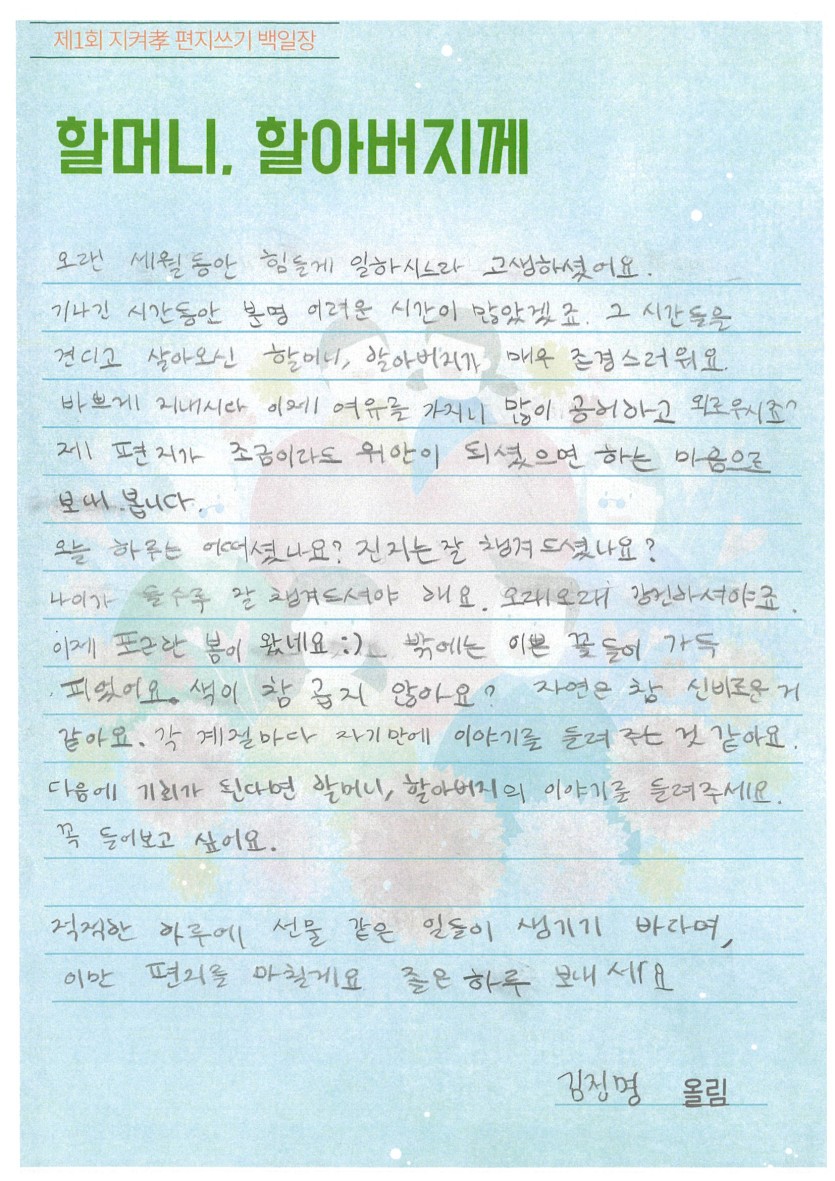 제1회 지켜孝 편지쓰기 백일장
할머니, 할아버지께
오랜 세월동안 힘들게 일하시느라 고생하셨어요.
기나긴 시간동안 분명 어려운 시간이 많았겠죠. 그 시간들을
견디고 살아오신 할머니, 할아버지가 매우 존경스러워요.
바쁘게 지내시다 이제 여유를 가지니 많이 공허하고 외로우시죠?
제 편지가 조금이라도 위안이 되셨으면 하는 마음으로
보내 봅니다.
오늘 하루는 어떠셨나요? 진지는 잘 챙겨 드셨나요?
나이가 들수록 잘 챙겨드셔야 해요. 오래오래 강건하셔야죠.
이제 포근한 봄이 왔네요 :) 밖에는 이쁜 꽃들이 가득
피었어요. 색이 참 곱지 않아요? 자연은 참 신비로운 거
같아요. 각 계절마다 자기만에 이야기를 들려 주는 것 같아요.
다음에 기회가 된다면 할머니, 할아버지의 이야기를 들려주세요.
꼭 들어보고 싶어요.
적적한 하루에 선물 같은 일들이 생기기 바라며,
이만 편지를 마칠게요 좋은 하루 보내세요
김정명 올림